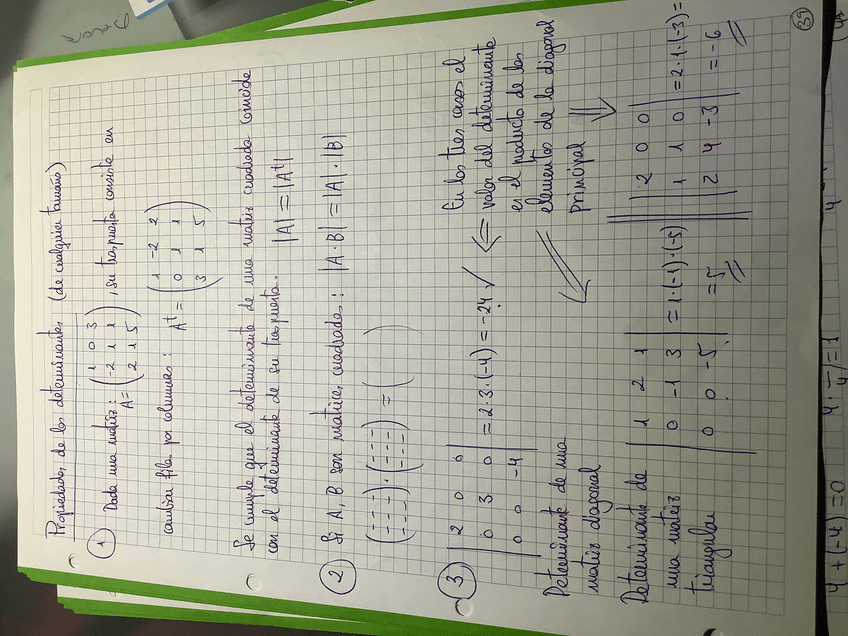 Propiedades de los determinantes (de cualquier tamaño)
① Dada una matriz: A = ( 1 0 3 / -2 1 1 / 2 1 5 ), su traspuesta consiste en
cambiar filas por columnas: Aᵗ = ( 1 -2 2 / 0 1 1 / 3 1 5 )
Se cumple que el determinante de una matriz cuadrada coincide
con el determinante de su traspuesta. |A| = |Aᵗ|
② Si A, B son matrices cuadradas: |A·B| = |A|·|B|
( --- / --- / --- ) · ( --- / --- / --- ) = ( )
③ | 2 0 0 / 0 3 0 / 0 0 -4 | = 2·3·(-4) = -24 ✓
Determinante de una
matriz diagonal
⇐
En los tres casos el
valor del determinante
es el producto de los
elementos de la diagonal
principal
Determinante de
una matriz
triangular
| 1 2 1 / 0 -1 3 / 0 0 -5 | = 1·(-1)·(-5)
= 5
| 2 0 0 / 1 1 0 / 2 4 -3 | = 2·1·(-3) =
= -6
39
4 + (-4) = 0